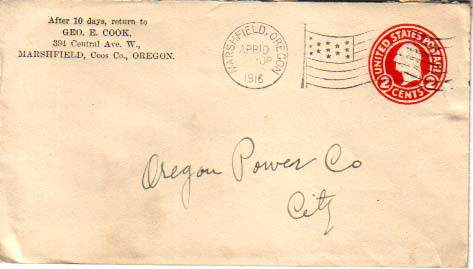 After 10 days, return to
GEO. E. COOK,
394 Central Ave. W.,
MARSHFIELD, Coos Co., OREGON.
MARSHFIELD, OREGON
APR 10
1916
UNITED STATES POSTAGE
2 CENTS 2
Oregon Power Co
City